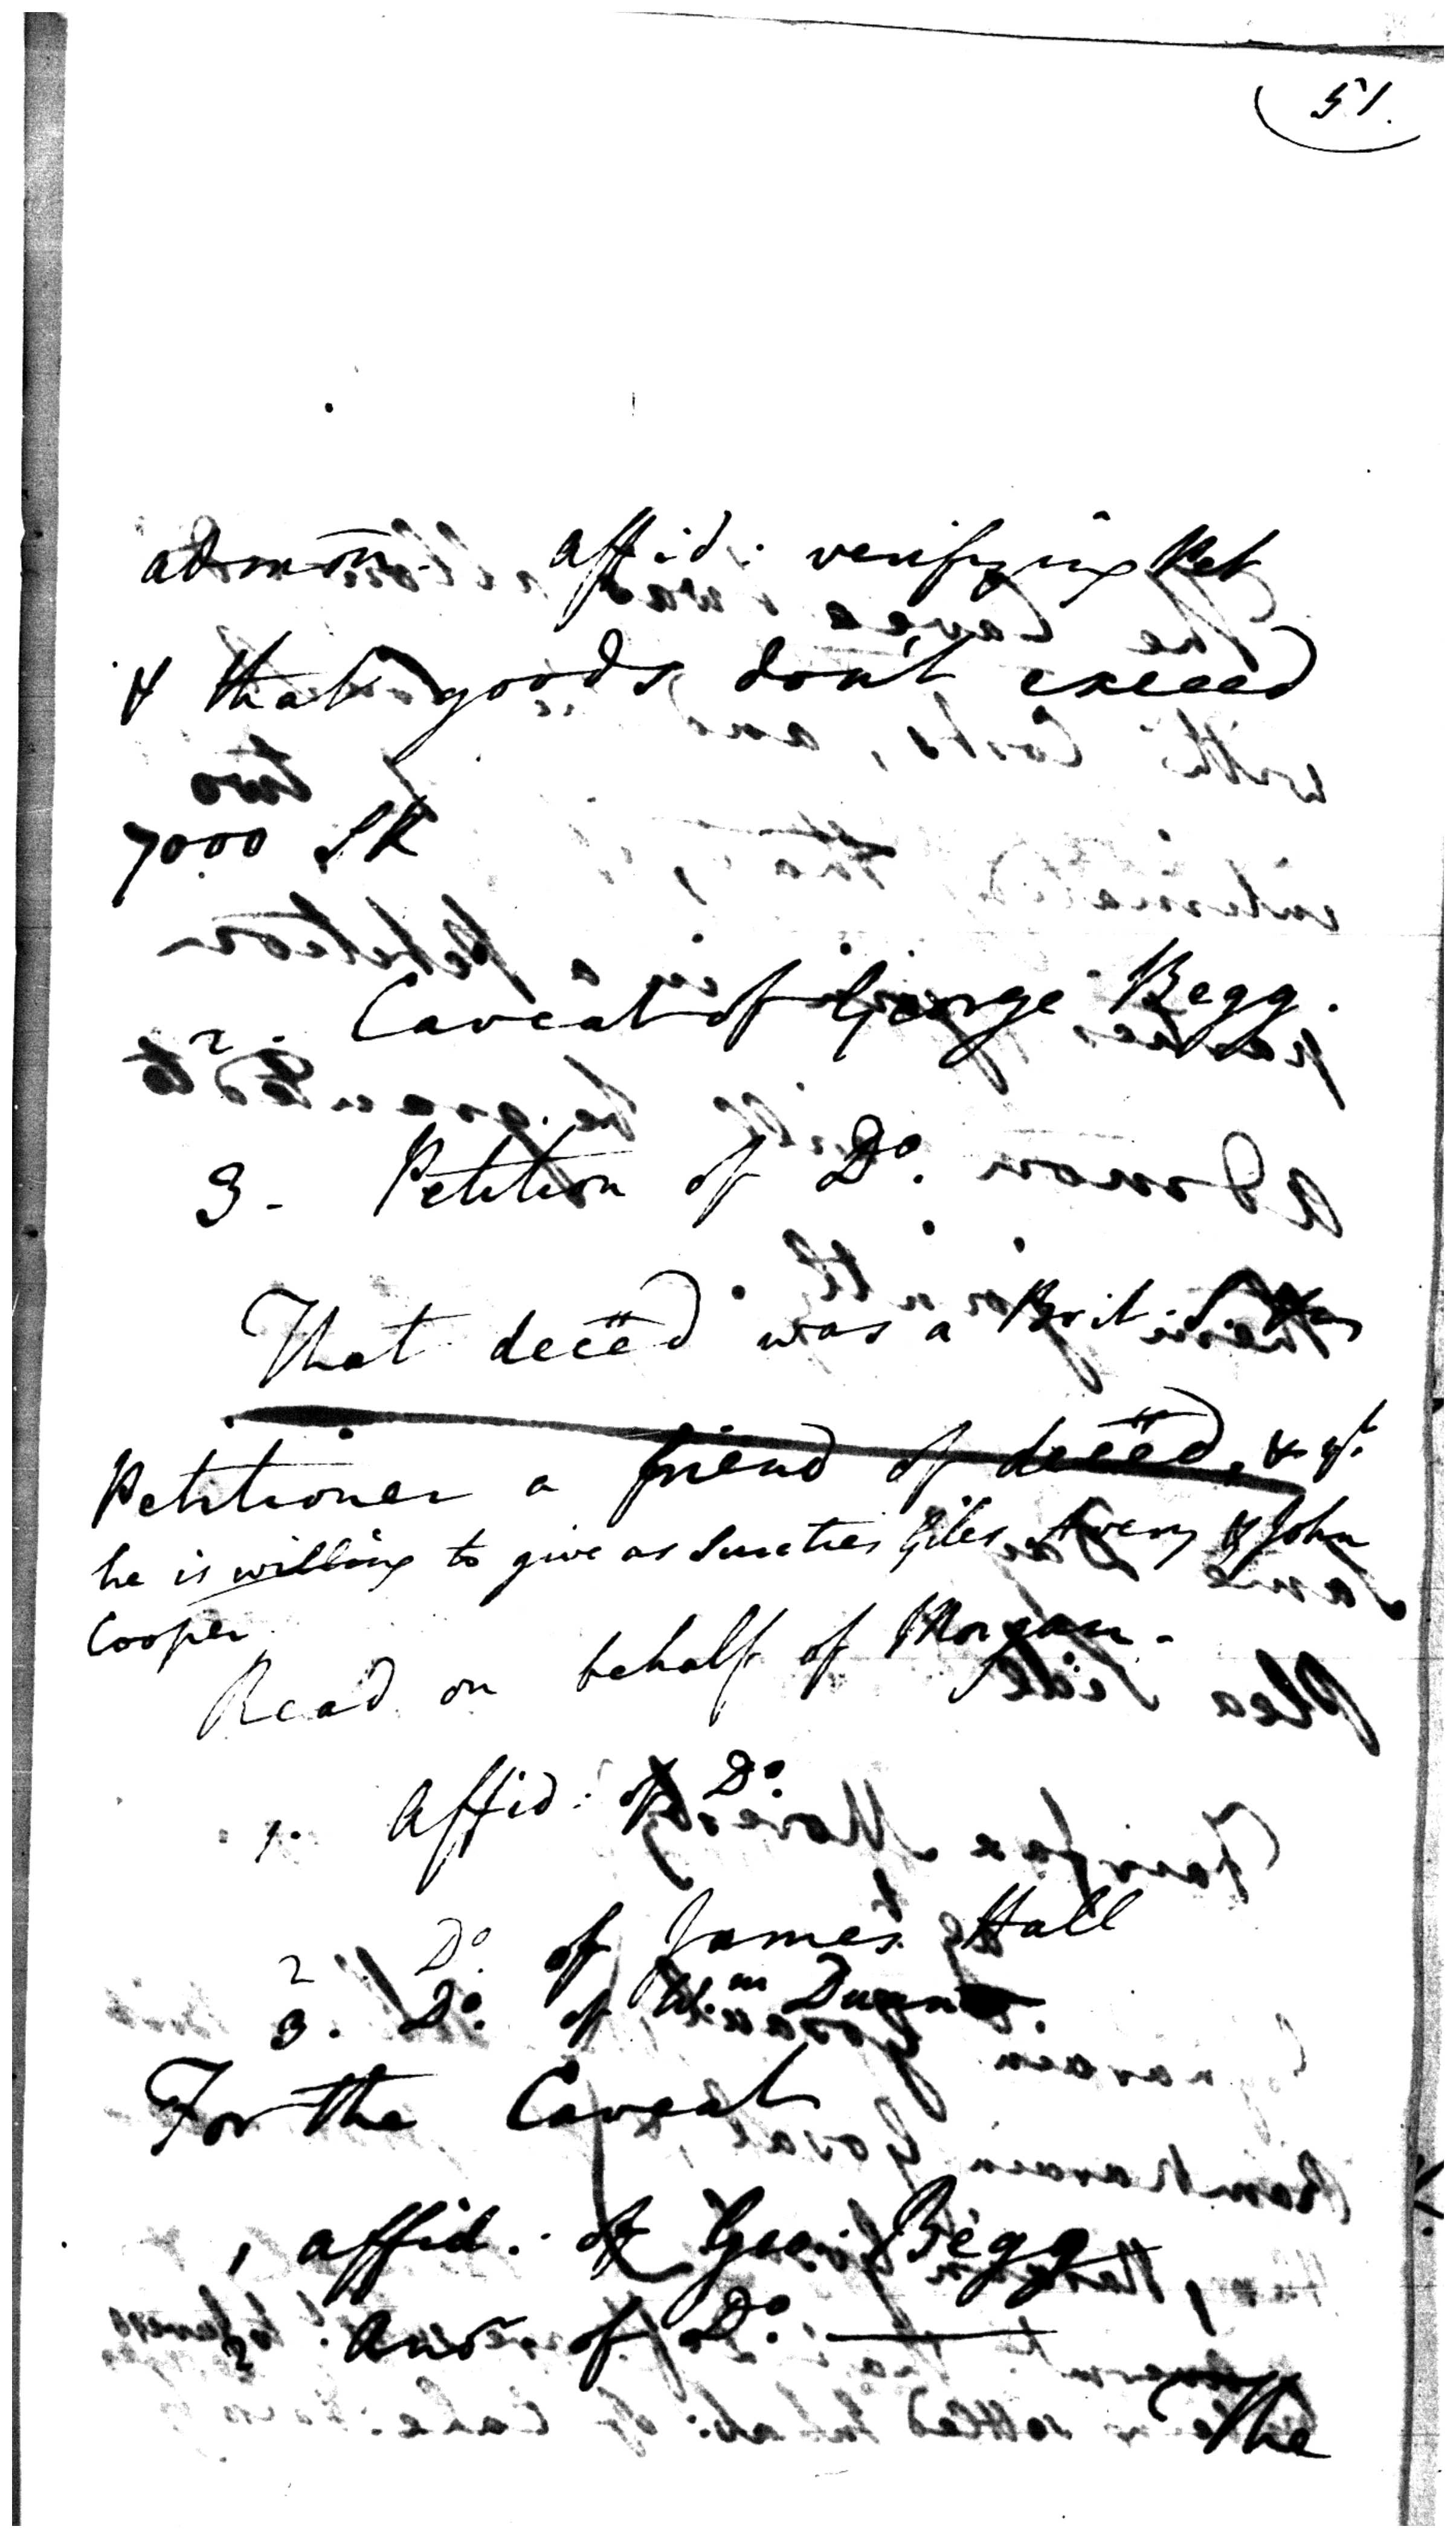 51.
admõn. Affid: verifying Pet
& that goods don't exceed
7000 SR
2. Caveat of George Begg.
3 - Petition of Do.
That deceëd was a Brit. S
Petitioner a friend of deceëd, & yt.
he is willing to give as Sureties Giles Avery & John
Cooper
Read on behalf of Morgan.
1. Affid: of Do.
2 Do. of James Hall
3. Do. of Wm. Dunn
For the Caveat
1 affid. of Geo. Begg
2 Ansr of Do.
The